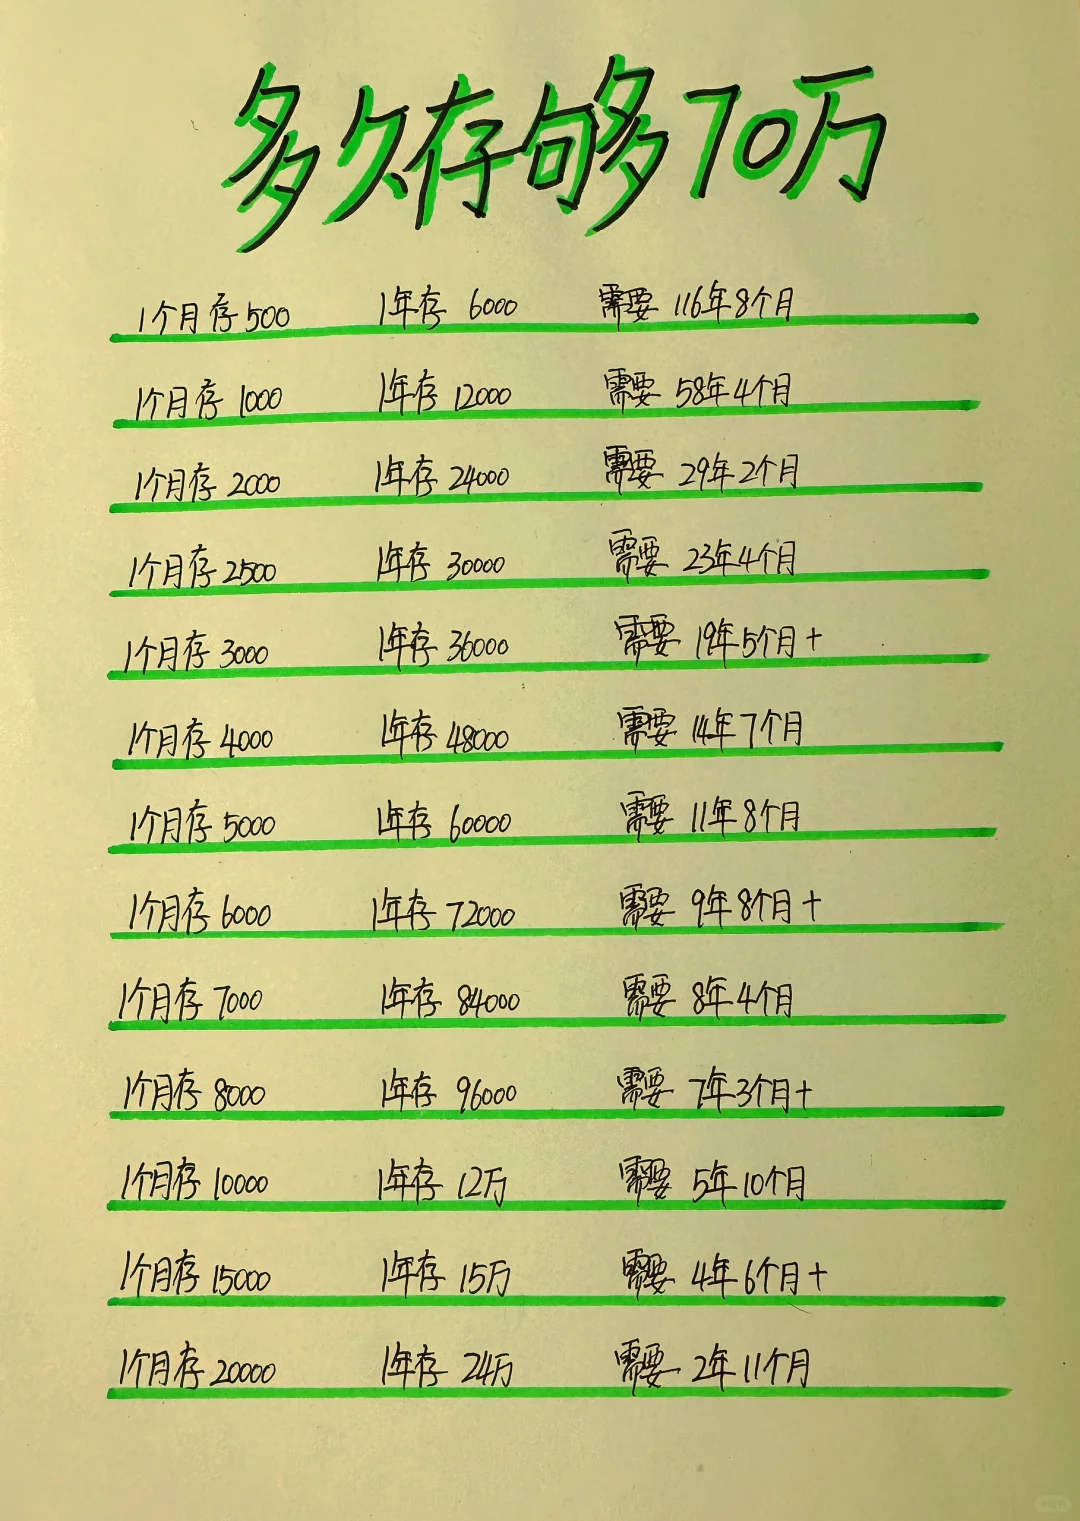 多久存够70万
1个月存500 1年存 6000 需要 116年8个月
1个月存 1000 1年存 12000 需要 58年4个月
1个月存 2000 1年存 24000 需要 29年2个月
1个月存 2500 1年存 30000 需要 23年4个月
1个月存 3000 1年存 36000 需要 19年5个月+
1个月存 4000 1年存 48000 需要 14年7个月
1个月存 5000 1年存 60000 需要 11年8个月
1个月存 6000 1年存 72000 需要 9年8个月+
1个月存 7000 1年存 84000 需要 8年4个月
1个月存 8000 1年存 96000 需要 7年3个月+
1个月存 10000 1年存 12万 需要 5年10个月
1个月存 15000 1年存 15万 需要 4年6个月+
1个月存 20000 1年存 24万 需要 2年11个月